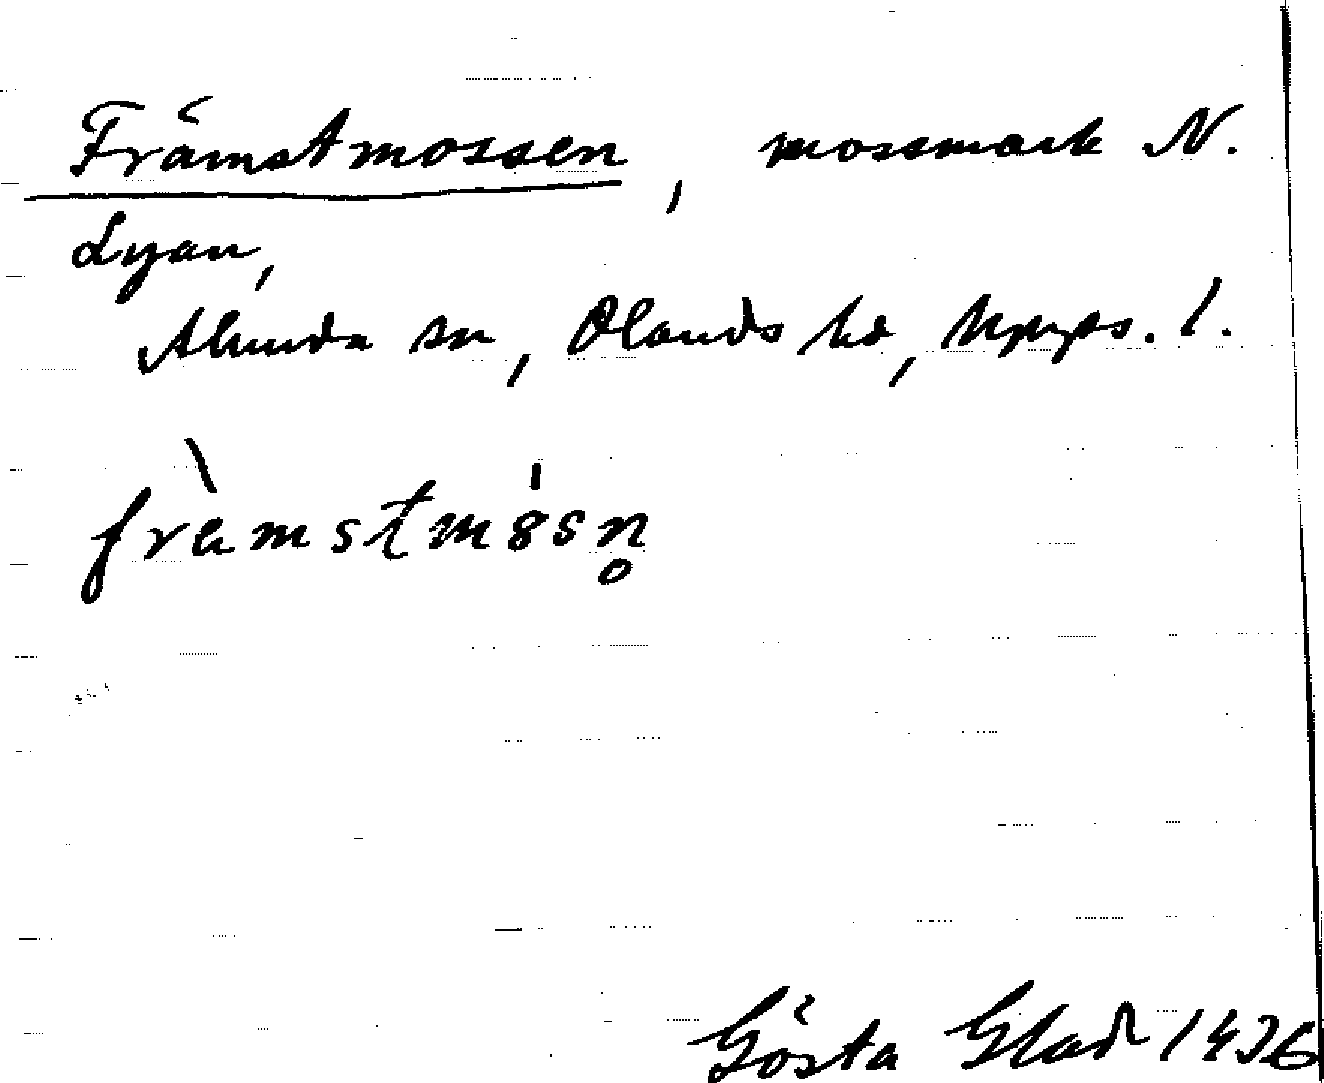 Främstmossen, mossmark N.
Lyan,
Alunda sn, Olands hd, Upps. l.
fràmstmósn̥
Gösta Glad 1936